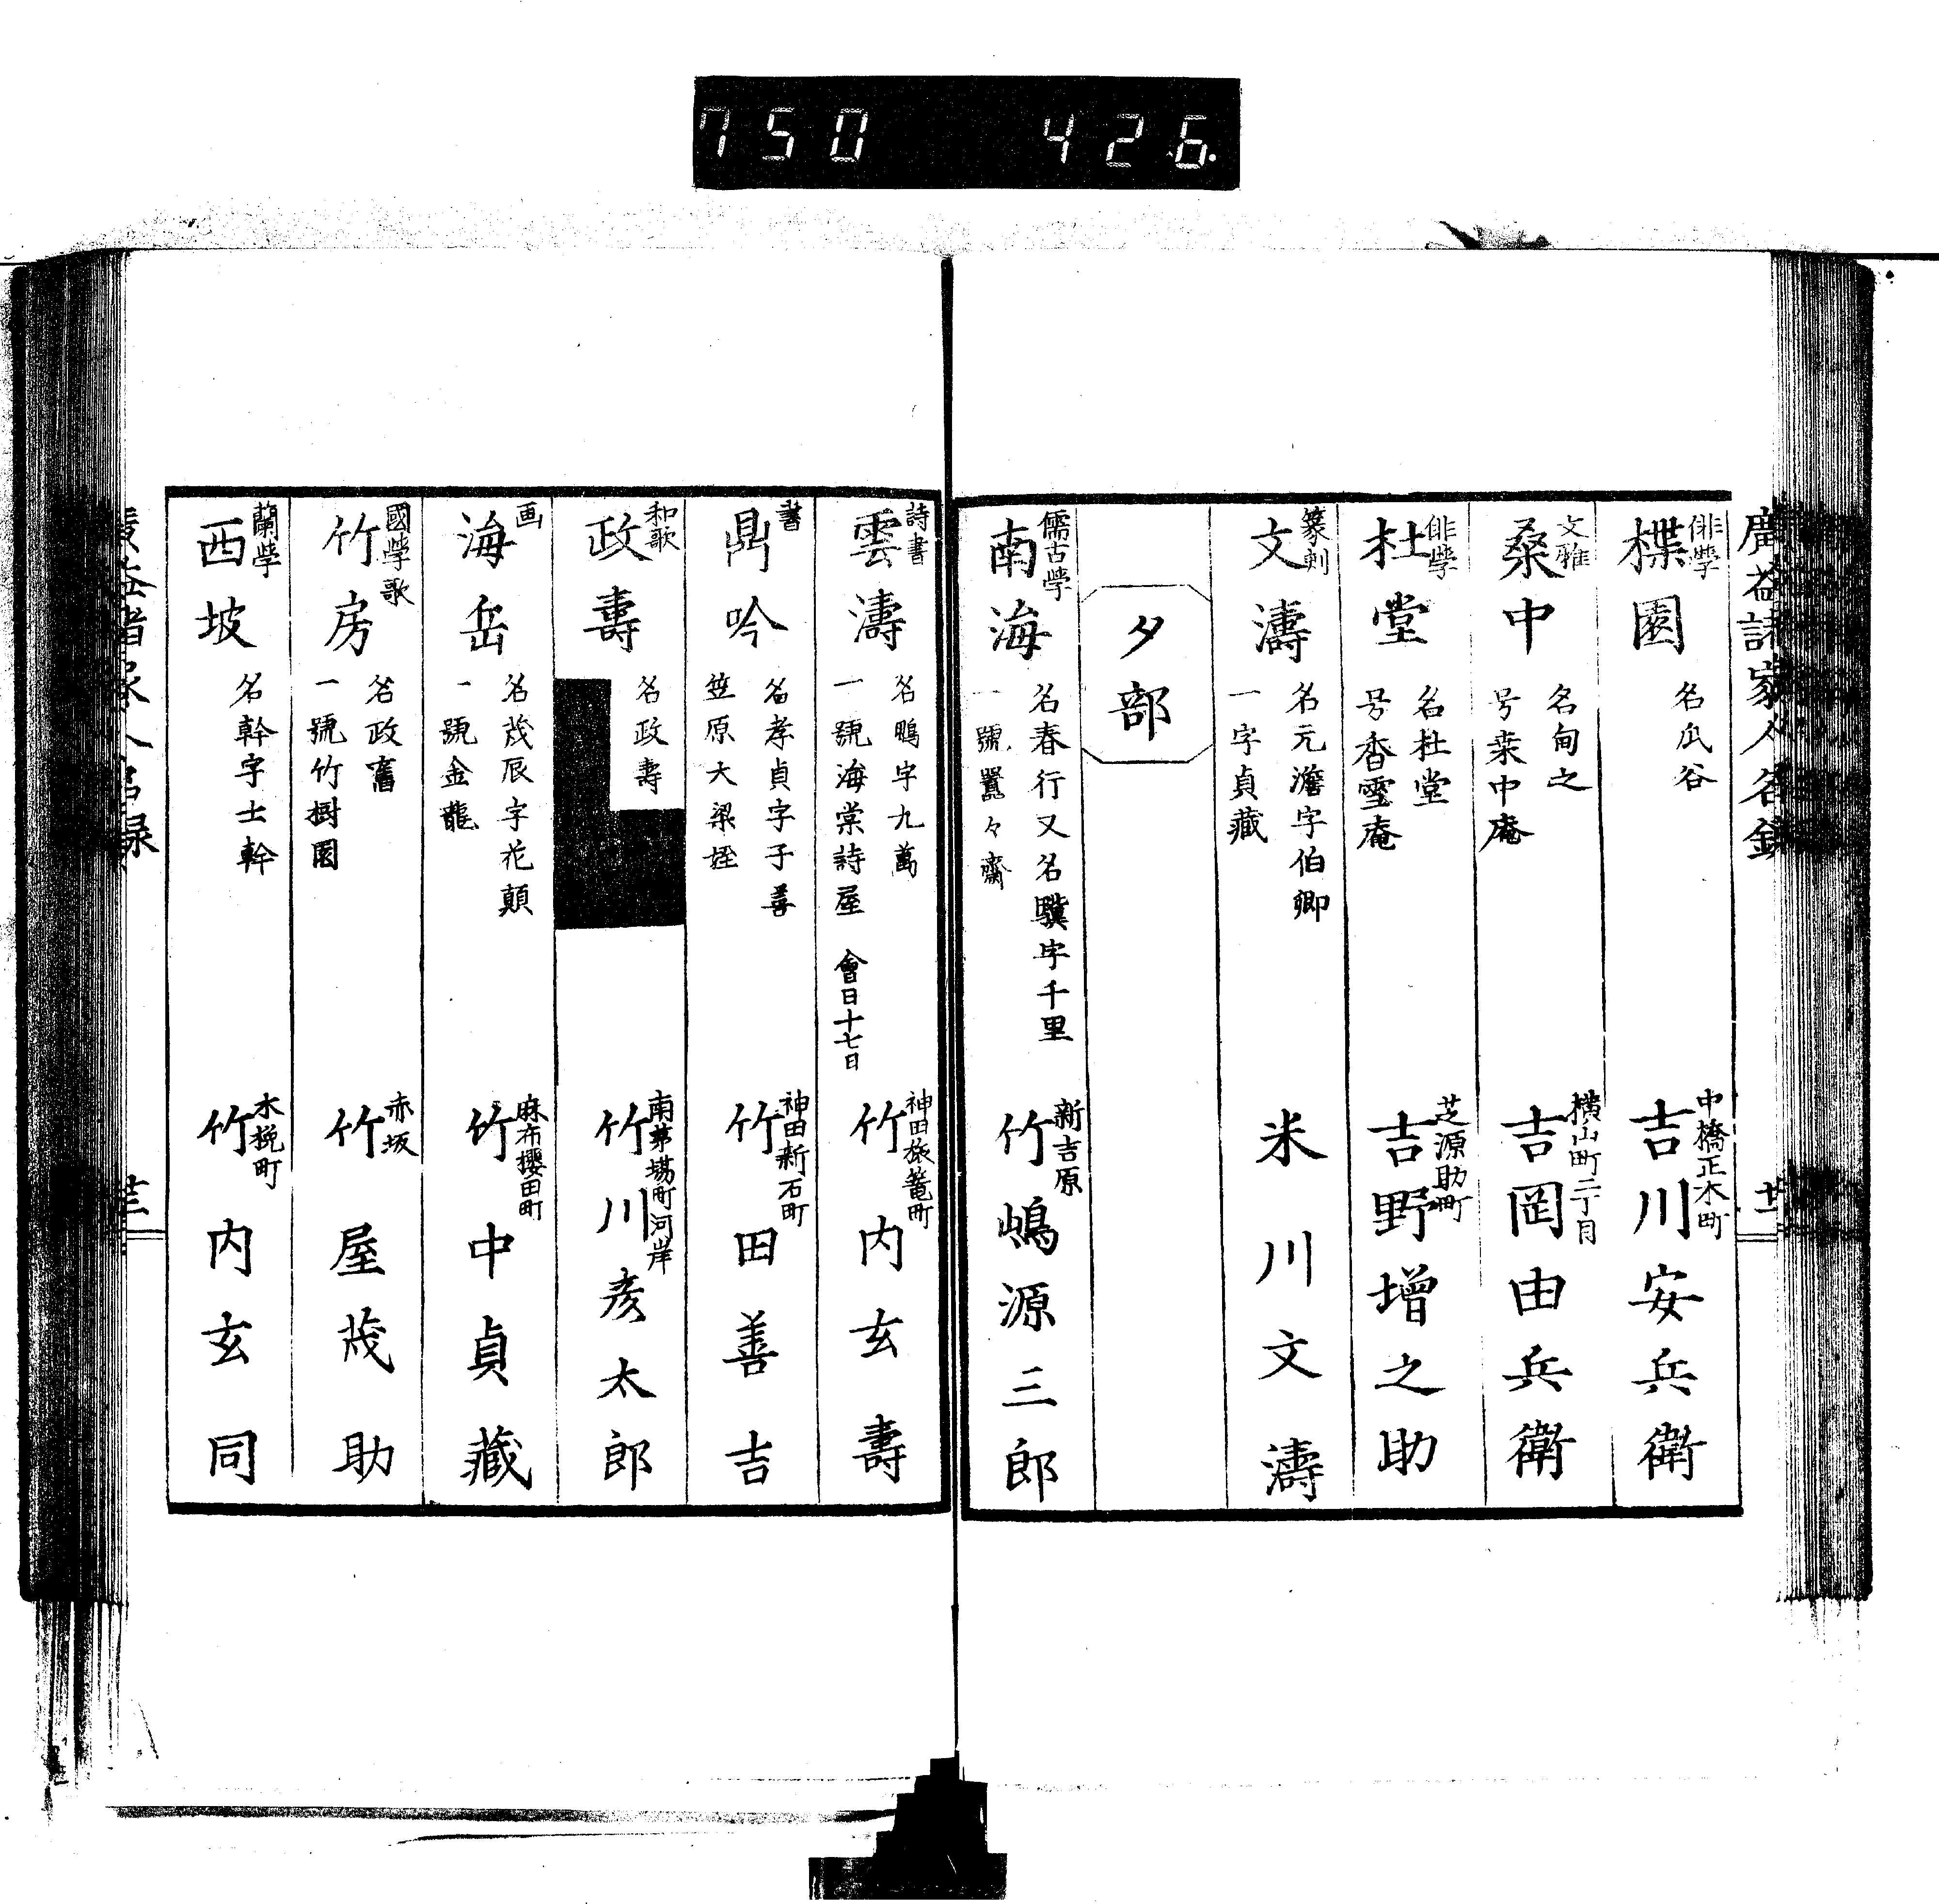 750 426
廣益諸家人名録
俳學
楳園
名瓜谷
中橋正木町
吉川安兵衛
文雅
桑中
名甸之
号桒中庵
横山町二丁目
吉岡由兵衛
俳學
杜堂
名杜堂
号香雪庵
芝源助町
吉野增之助
篆刻
文濤
名元澹字伯卿
一字貞藏
米川文濤
夕部
儒古學
南海
名春行又名驥字千里
一號囂々齋
新吉原
竹嶋源三郎
詩書
雲濤
名鵬字九萬
一號海棠詩屋
會日十七日
神田旅篭町
竹内玄壽
書
鼎吟
名孝貞字子善
笠原大梁姪
神田新石町
竹田善吉
和歌
政壽
名政壽
南茅場町河岸
竹川彦太郎
画
海岳
名茂辰字花顛
一號金龍
麻布櫻田町
竹中貞藏
國學歌
竹房
名政舊
一號竹樹園
赤坂
竹屋茂助
蘭學
西坡
名幹字士幹
木挽町
竹内玄同